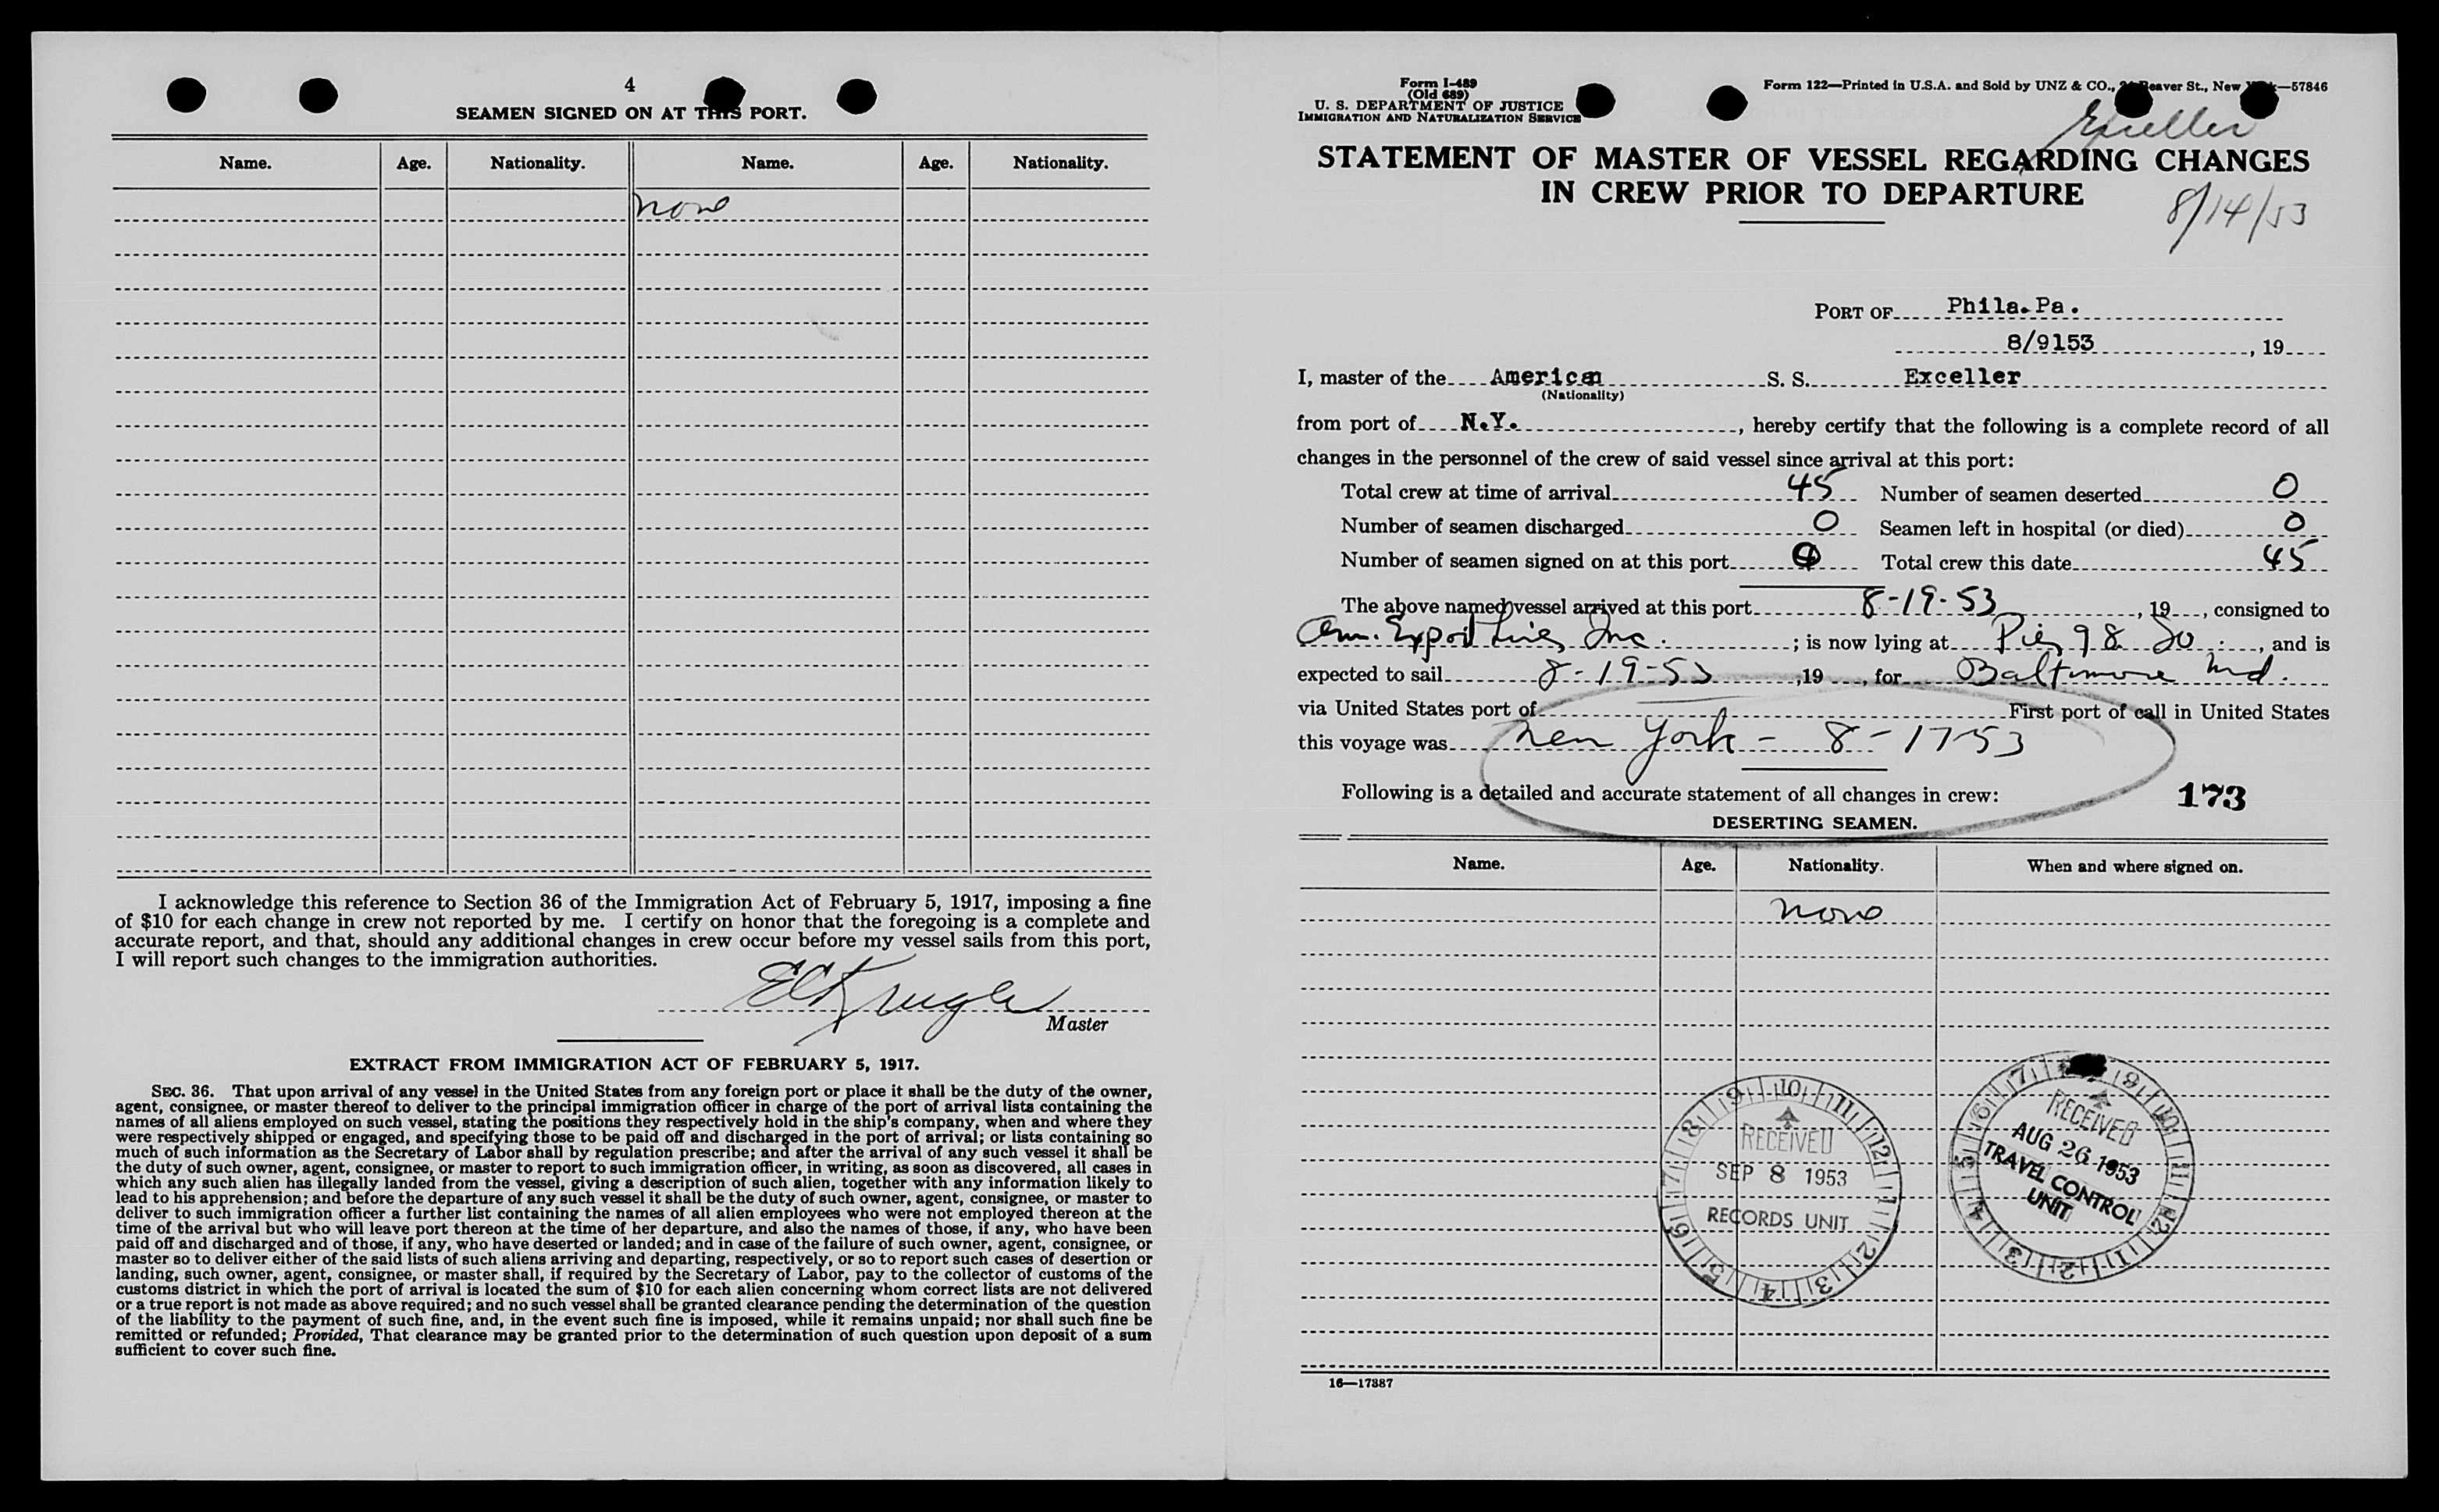 4
SEAMEN SIGNED ON AT THIS PORT.
Name. Age. Nationality. Name. Age. Nationality.
none
I acknowledge this reference to Section 36 of the Immigration Act of February 5, 1917, imposing a fine
of $10 for each change in crew not reported by me. I certify on honor that the foregoing is a complete and
accurate report, and that, should any additional changes in crew occur before my vessel sails from this port,
I will report such changes to the immigration authorities.
Master
EXTRACT FROM IMMIGRATION ACT OF FEBRUARY 5, 1917.
SEC. 36. That upon arrival of any vessel in the United States from any foreign port or place it shall be the duty of the owner,
agent, consignee, or master thereof to deliver to the principal immigration officer in charge of the port of arrival lists containing the
names of all aliens employed on such vessel, stating the positions they respectively hold in the ship's company, when and where they
were respectively shipped or engaged, and specifying those to be paid off and discharged in the port of arrival; or lists containing so
much of such information as the Secretary of Labor shall by regulation prescribe; and after the arrival of any such vessel it shall be
the duty of such owner, agent, consignee, or master to report to such immigration officer, in writing, as soon as discovered, all cases in
which any such alien has illegally landed from the vessel, giving a description of such alien, together with any information likely to
lead to his apprehension; and before the departure of any such vessel it shall be the duty of such owner, agent, consignee, or master to
deliver to such immigration officer a further list containing the names of all alien employees who were not employed thereon at the
time of the arrival but who will leave port thereon at the time of her departure, and also the names of those, if any, who have been
paid off and discharged and of those, if any, who have deserted or landed; and in case of the failure of such owner, agent, consignee, or
master so to deliver either of the said lists of such aliens arriving and departing, respectively, or so to report such cases of desertion or
landing, such owner, agent, consignee, or master shall, if required by the Secretary of Labor, pay to the collector of customs of the
customs district in which the port of arrival is located the sum of $10 for each alien concerning whom correct lists are not delivered
or a true report is not made as above required; and no such vessel shall be granted clearance pending the determination of the question
of the liability to the payment of such fine, and, in the event such fine is imposed, while it remains unpaid; nor shall such fine be
remitted or refunded; Provided, That clearance may be granted prior to the determination of such question upon deposit of a sum
sufficient to cover such fine.
Form I-489
(Old 689)
U. S. DEPARTMENT OF JUSTICE
IMMIGRATION AND NATURALIZATION SERVICE
Form 122—Printed in U.S.A. and Sold by UNZ & CO., Beaver St., New York—57846
Exceller
STATEMENT OF MASTER OF VESSEL REGARDING CHANGES
IN CREW PRIOR TO DEPARTURE
8/14/53
PORT OF Phila. Pa.
8/9153, 19
I, master of the American S. S. Exceller
(Nationality)
from port of N.Y., hereby certify that the following is a complete record of all
changes in the personnel of the crew of said vessel since arrival at this port:
Total crew at time of arrival 45 Number of seamen deserted 0
Number of seamen discharged 0 Seamen left in hospital (or died) 0
Number of seamen signed on at this port Total crew this date 45
The above named vessel arrived at this port 8-19-53, 19, consigned to
Am. Export Lines Inc.; is now lying at Pier 98 So., and is
expected to sail 8-19-53, 19, for Baltimore Md.
via United States port of First port of call in United States
this voyage was New York - 8-17-53
Following is a detailed and accurate statement of all changes in crew:
173
DESERTING SEAMEN.
Name. Age. Nationality. When and where signed on.
none
RECEIVED
SEP 8 1953
RECORDS UNIT
RECEIVED
AUG 26 1953
TRAVEL CONTROL
UNIT
16—17387